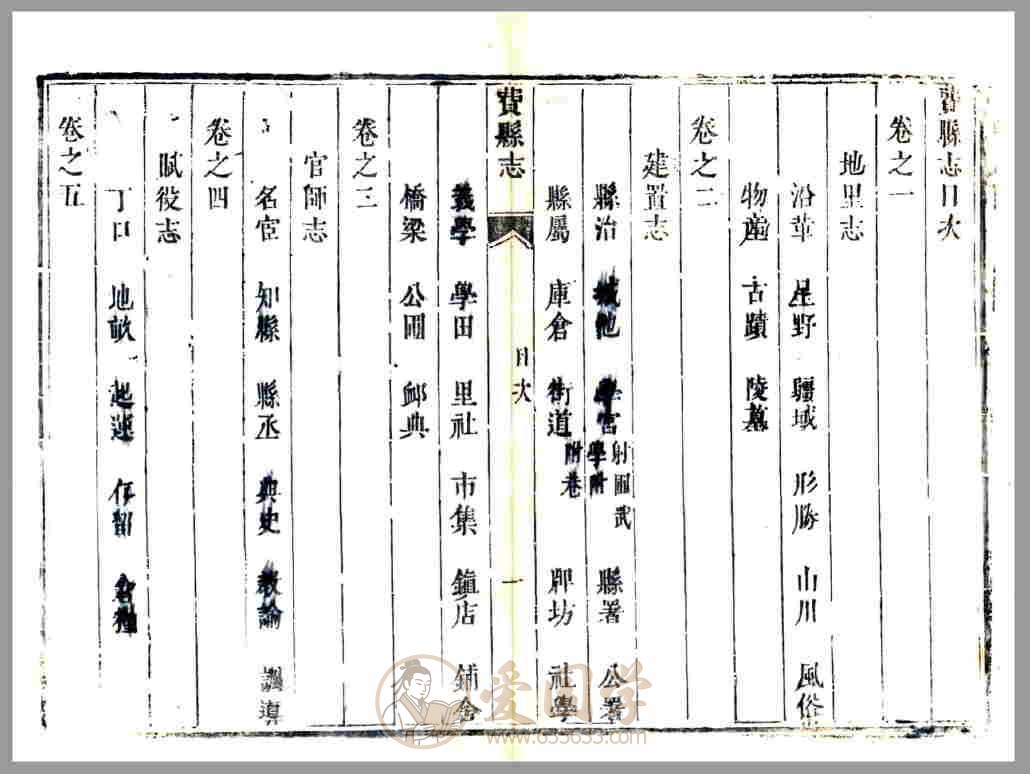 費縣志目次
卷之一
地里志
沿革 星野 疆域 形勝 山川 風俗
物產 古蹟 陵墓
卷之二
建置志
縣治 城池 學宮 射圃武學附 縣署 公署
縣屬 庫倉 街道 附巷 牌坊 社學
費縣志 目次 一
義學 學田 里社 市集 鎮店 鋪舍
橋梁 公圃 邮典
卷之三
官師志
名宦 知縣 縣丞 典史 教諭 訓導
卷之四
賦役志
丁口 地畝 起運 存留
卷之五
爱国学
www.655633.com